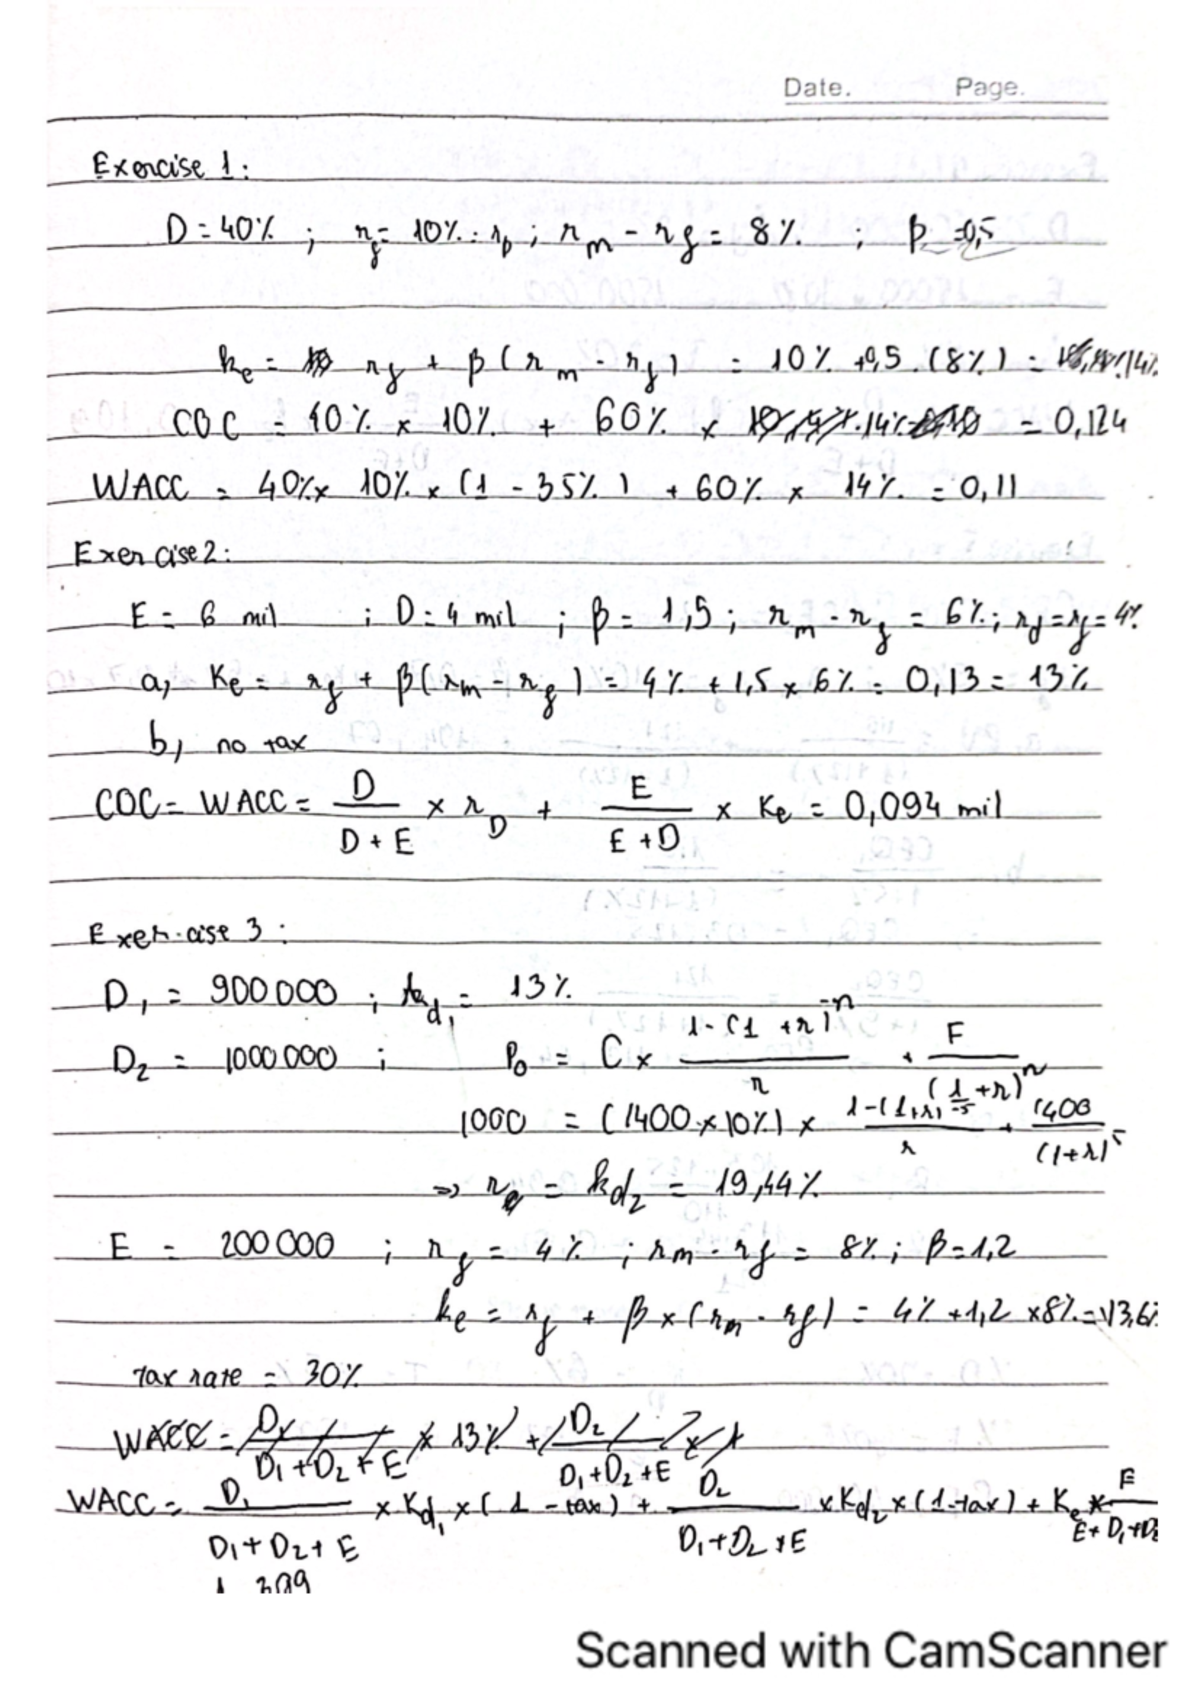 Date. Page.
Exercise 1:
D = 40% ; r_f = 10% = r_D ; r_m - r_f = 8% ; β = 0,5
k_e = r_f + β (r_m - r_f) = 10% + 0,5 (8%) = 14%
COC = 40% × 10% + 60% × 14% = 0,124
WACC = 40% × 10% × (1 - 35%) + 60% × 14% = 0,11
Exercise 2:
E = 6 mil ; D = 4 mil ; β = 1,5 ; r_m - r_f = 6% ; r_d = r_f = 4%
a, Ke = r_f + β(r_m - r_f) = 4% + 1,5 × 6% = 0,13 = 13%
b, no tax
COC = WACC = D / (D + E) × r_D + E / (E + D) × Ke = 0,094 mil
Exercise 3:
D_1 = 900 000 ; k_d_1 = 13%
D_2 = 1000 000 ; P_0 = C × (1 - (1 + r)^-n) / r + F / (1 + r)^n
1000 = (1400 × 10%) × (1 - (1 + r)^-5) / r + 1400 / (1 + r)^5
=> r = k_d_2 = 19,44%
E = 200 000 ; r_f = 4% ; r_m - r_f = 8% ; β = 1,2
k_e = r_f + β × (r_m - r_f) = 4% + 1,2 × 8% = 13,6%
tax rate = 30%
WACC = D_1 / (D_1 + D_2 + E) × 13% + D_2 / (D_1 + D_2 + E) ×
WACC = D_1 / (D_1 + D_2 + E) × K_d_1 × (1 - tax) + D_2 / (D_1 + D_2 + E) × K_d_2 × (1 - tax) + K_e × E / (E + D_1 + D_2
Scanned with CamScanner